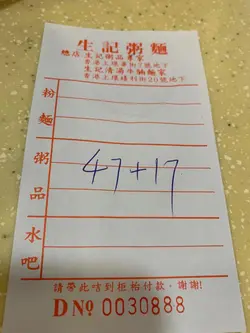 生記粥麵
總店 生記粥品專家
香港上環畢街7號地下
生記清湯牛腩麵家
香港上環禧利街20號地下
粉麵
粥品
水吧
47+17
請帶此咭到柜枱付款,謝謝!
D Nº 0030888